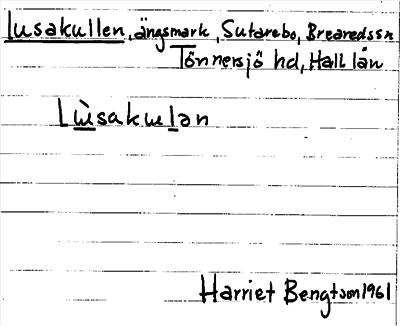 lusakullen, ängsmark, Sutarebo, Bredaredssn
Tönnersjö hd, Hall län
Lùsakulan
Harriet Bengtson 1961